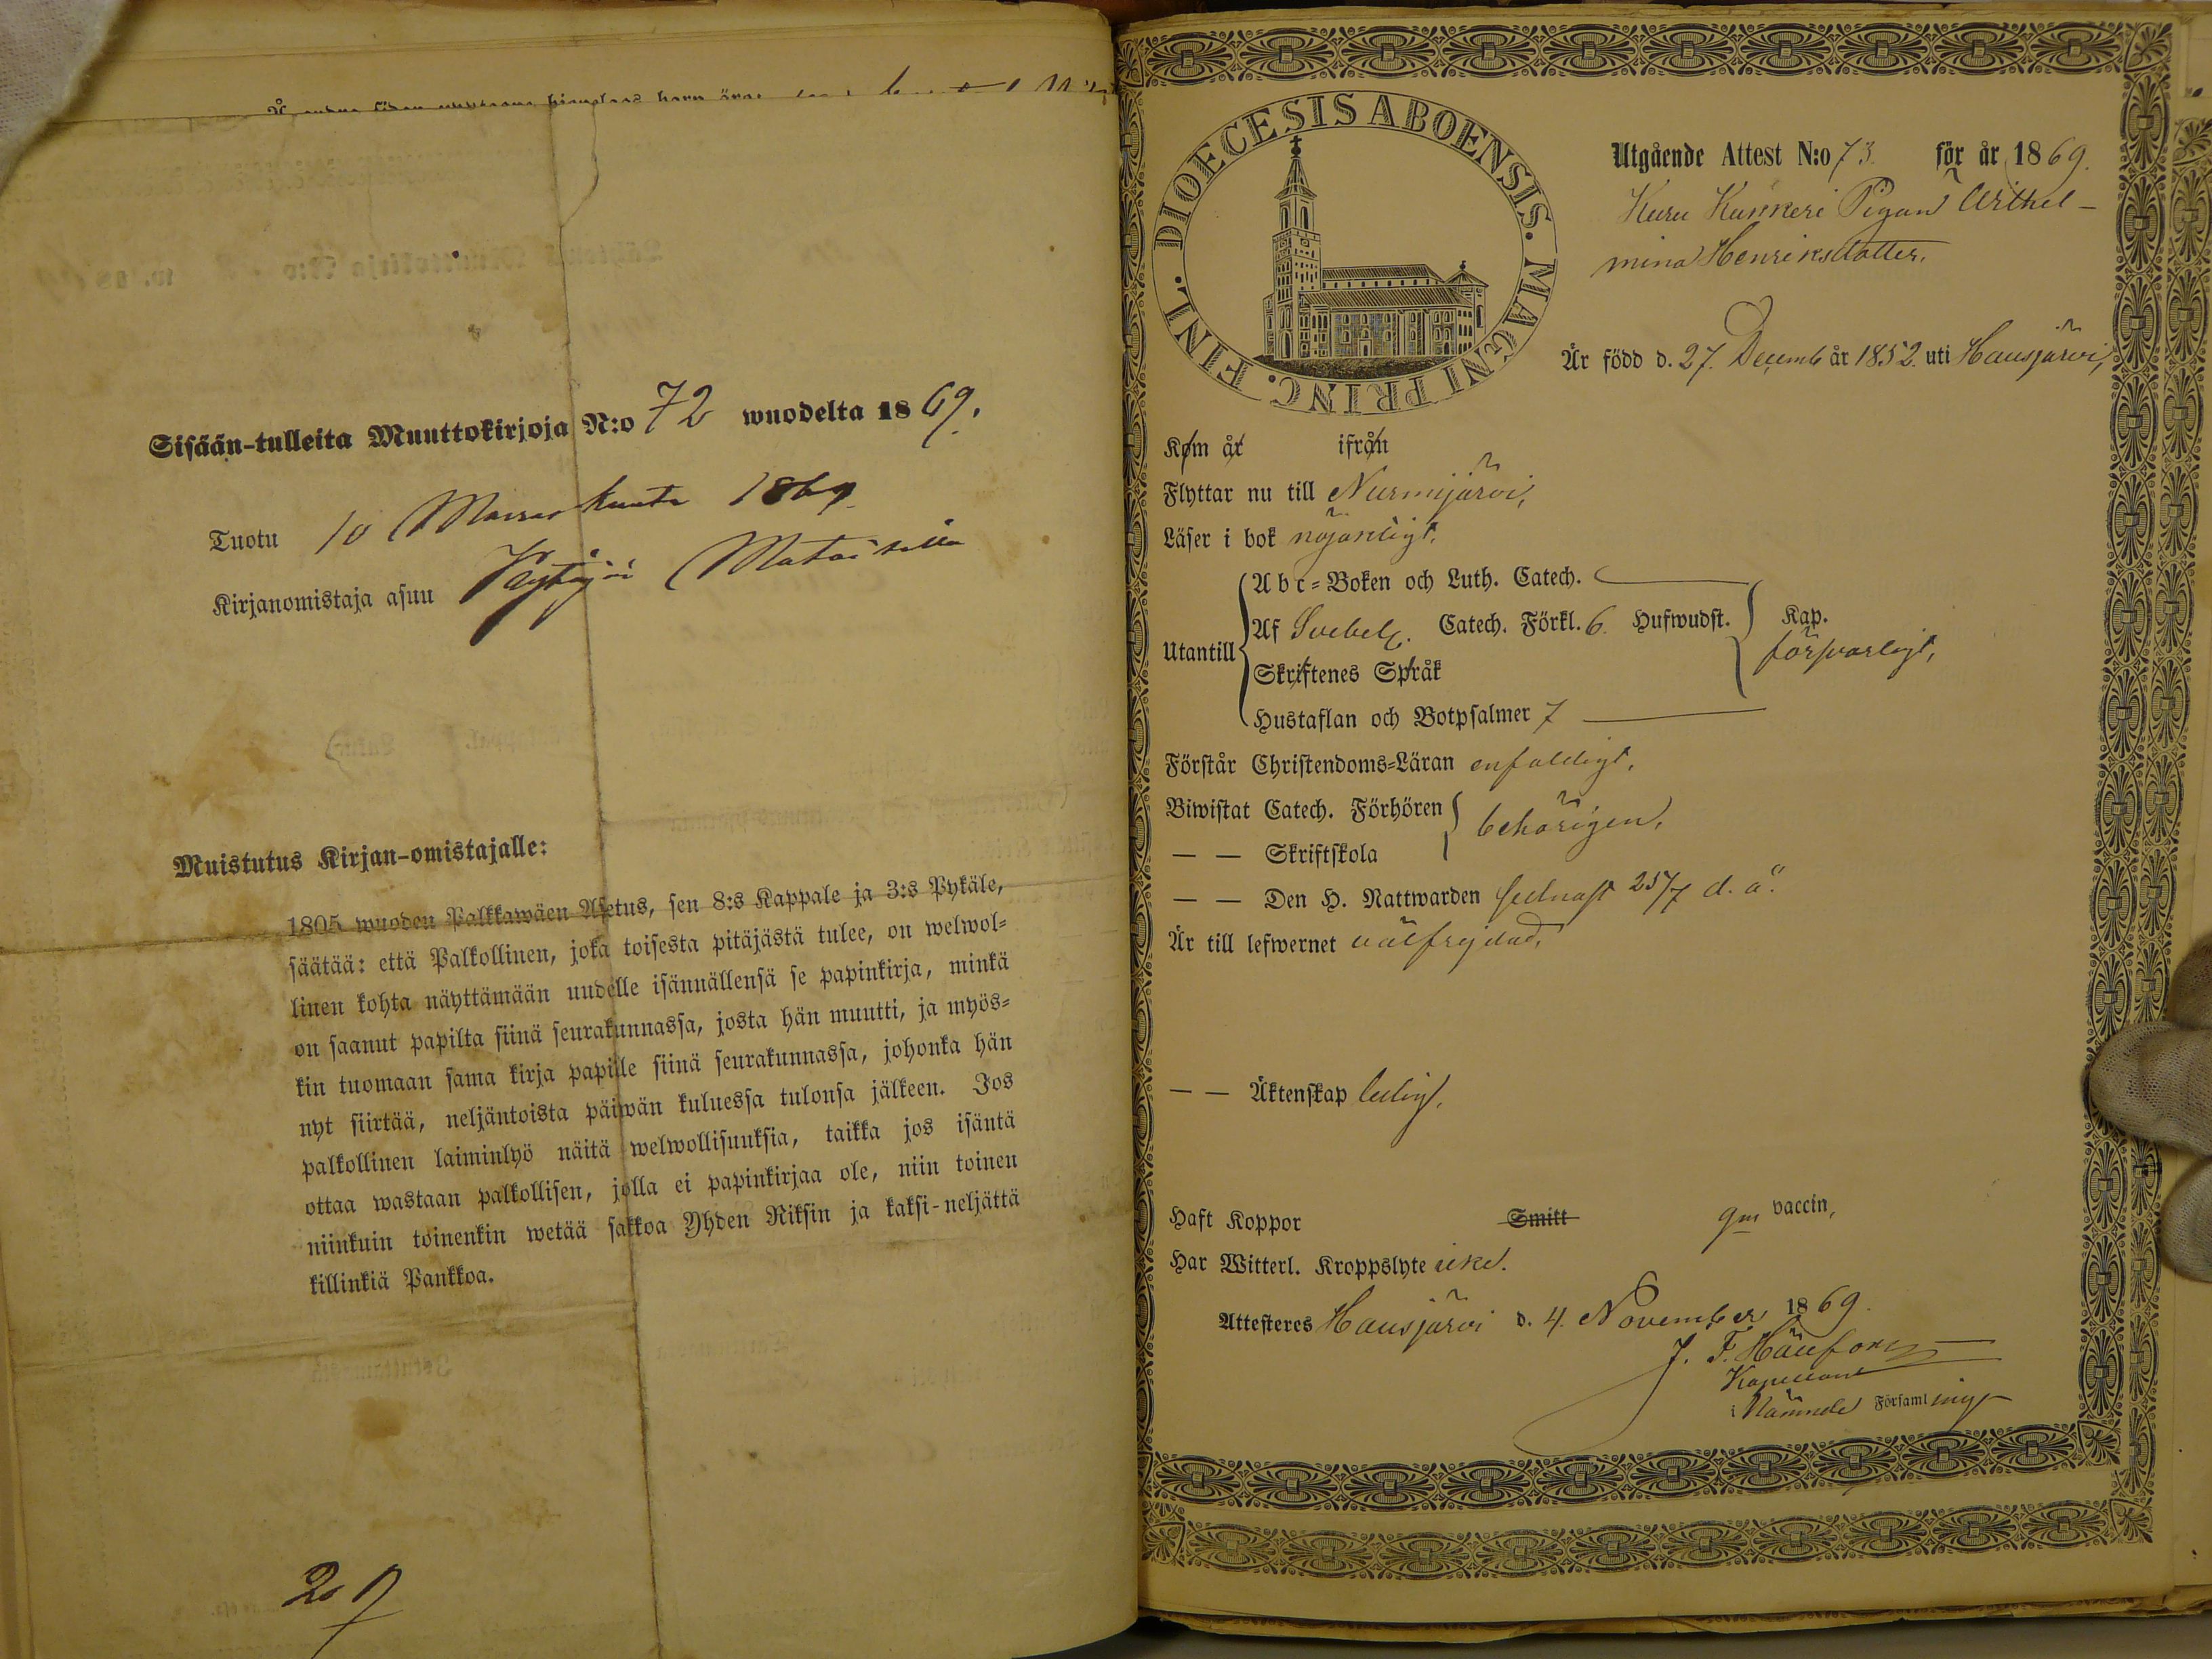 Sisään-tulleita Muuttokirjoja N:o 72 wuodelta 1869.
Tuotu 10 Marraskuuta 1869
Kirjanomistaja asuu
Muistutus Kirjan-omistajalle:
1805 wuoden Palkkawäen Asetus, sen 8:s Kappale ja 3:s Pykäle,
säätää: että Palkollinen, joka toisesta pitäjästä tulee, on welwol=
linen kohta näyttämään uudelle isännällensä se papinkirja, minkä
on saanut papilta siinä seurakunnassa, josta hän muutti, ja myös=
kin tuomaan sama kirja papille siinä seurakunnassa, johonka hän
nyt siirtää, neljäntoista päiwän kuluessa tulonsa jälkeen. Jos
palkollinen laiminlyö näitä welwollisuuksia, taikka jos isäntä
ottaa wastaan palkollisen, jolla ei papinkirjaa ole, niin toinen
niinkuin toinenkin wetää sakkoa Yhden Riksin ja kaksi-neljättä
killinkiä Pankkoa.
DIOECESIS ABOENSIS. MAGNI PRINC. FINL.
Utgående Attest N:o 73. för år 1869.
Pigan Wilhel-
mina Henriksdotter.
Är född d. 27. Decemb år 1852. uti Hausjärvi,
Kom år ifrån
Flyttar nu till Nurmijärvi,
Läser i bok nöjaktigt.
Utantill
Abc=Boken och Luth. Catech.
Af Svebel. Catech. Förkl. 6. Hufwudst. Kap.
försvarligt,
Skriftenes Språk
Hustaflan och Botpsalmer 7
Förstår Christendoms=Läran enfaldigt.
Biwistat Catech. Förhören behörigen,
— — Skriftskola
— — Den H. Nattwarden sednast 25/7 d. å.
Är till lefwernet välfrejdad,
— — Äktenskap ledig,
Haft Koppor Smitt gm vaccin,
Har Witterl. Kroppslyte icke.
Attesteres Hausjärvi d. 4. November 1869.
J. F.
Kapellan
i Nämnde Församling